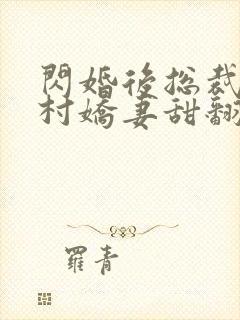 閃婚後總裁
村嬌妻甜翻
羅青